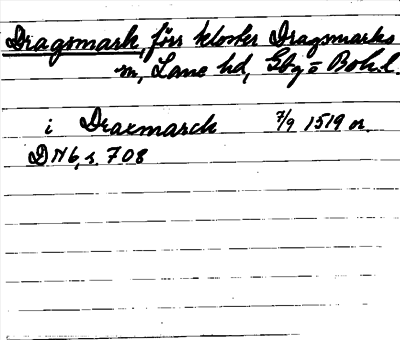 Dragsmark, förr kloster Dragsmarks
sn, Lane hd, Gbg o Boh.l.
i Draxmarck 7/9 1519 or.
DN 6, s. 708